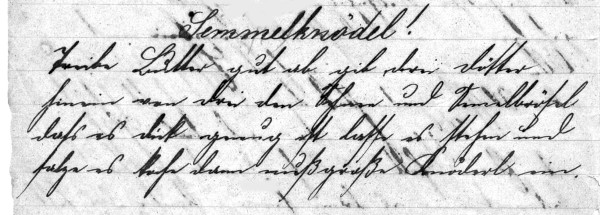 Semmelknödel!
Treibe Butter gut ab gib drei Dotter
hinein von drei den Schnee und Semelbrösel
dass es dick genug ist lasse es stehn und
salze es koche dann nußgroße Knöderl ein.